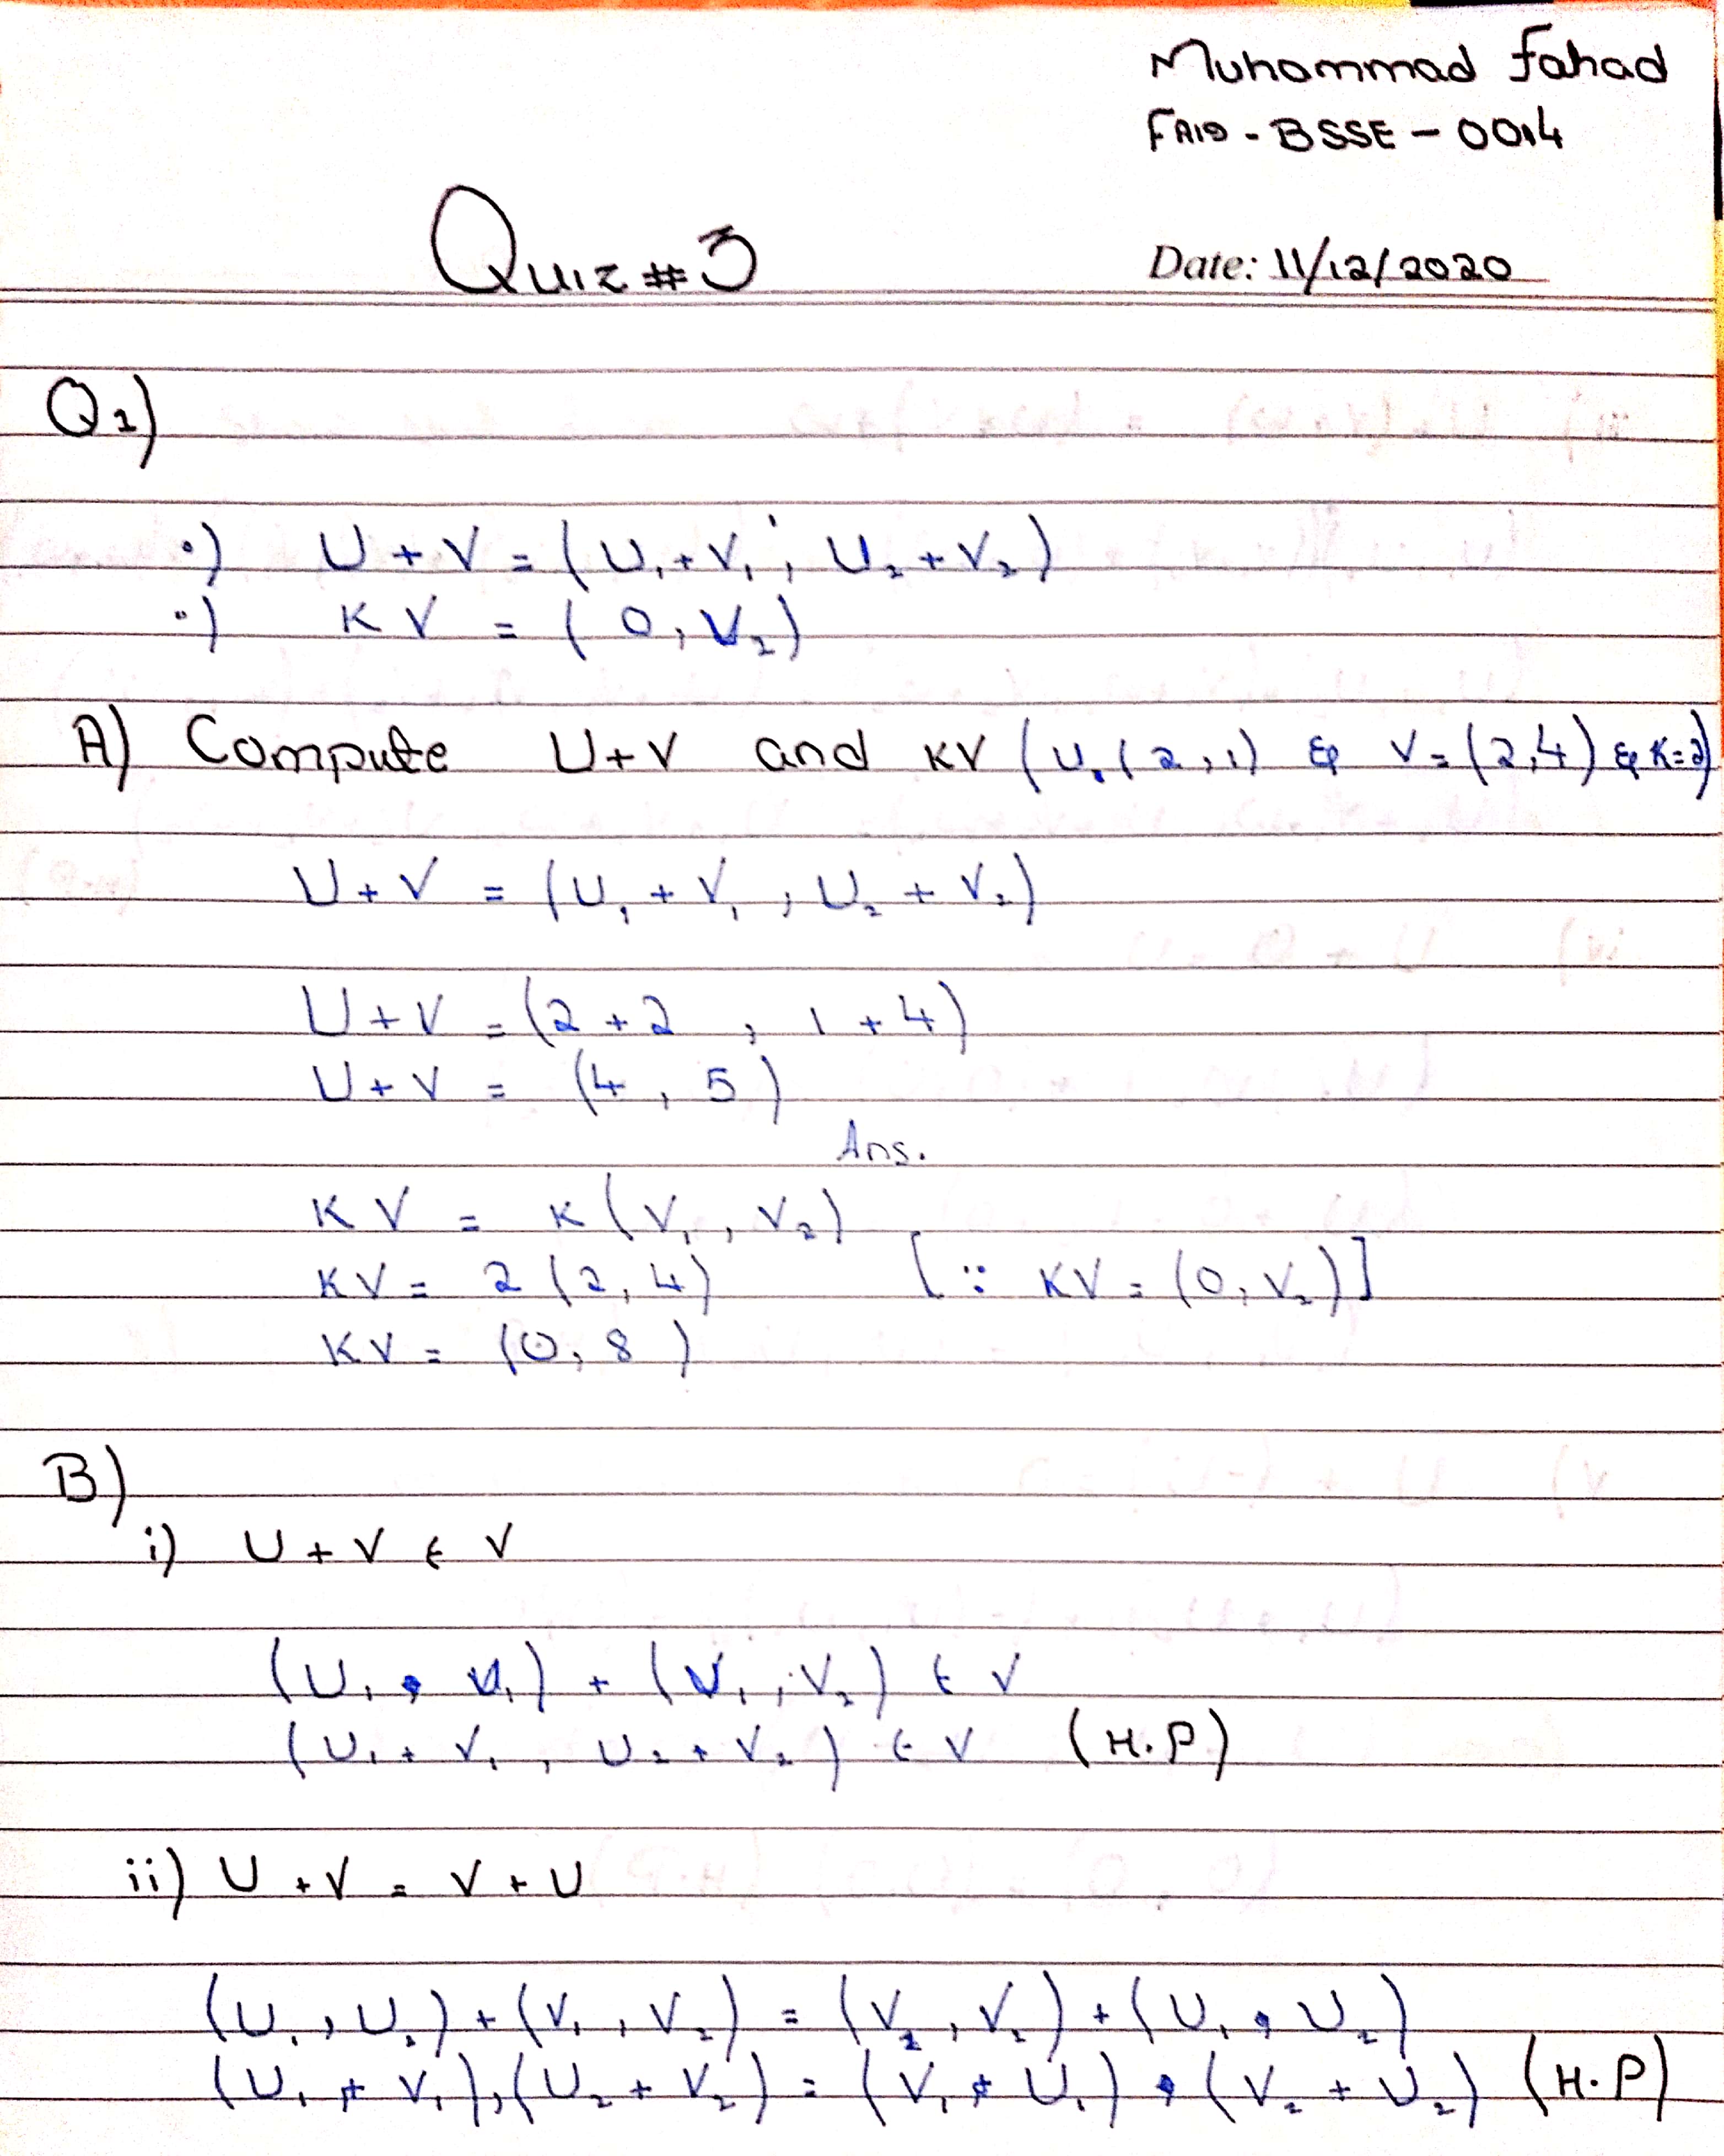 Muhammad Fahad
FA19 - BSSE - 0014
Quiz #3
Date: 11/12/2020
Q1)
•) U + V = (U₁ + V₁, U₂ + V₂)
•) KV = (0, V₂)
A) Compute U+V and KV (U=(2,1) & V=(2,4) & K=2)
U + V = (U₁ + V₁, U₂ + V₂)
U + V = (2 + 2, 1 + 4)
U + V = (4, 5)
Ans.
KV = K(V₁, V₂)
KV = 2(2, 4) [∵ KV = (0, V₂)]
KV = (0, 8)
B)
i) U + V ∈ V
(U₁, U₁) + (V₁, V₂) ∈ V
(U₁ + V₁, U₂ + V₂) ∈ V (H.P)
ii) U + V = V + U
(U₁, U₂) + (V₁, V₂) = (V₁, V₂) + (U₁, U₂)
(U₁ + V₁), (U₂ + V₂) = (V₁ + U₁), (V₂ + U₂) (H.P)